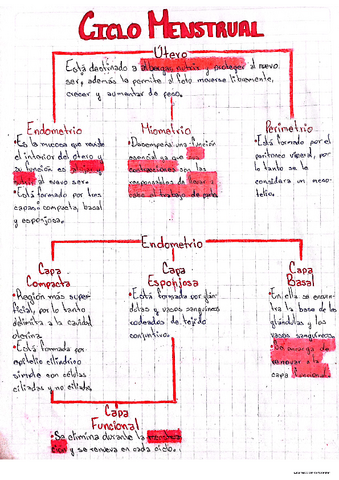 CICLO MENSTRUAL
Útero
Está destinado a albergar, nutrir y proteger al nuevo
ser, además le permite al feto moverse libremente,
crecer y aumentar de peso.
Endometrio
•Es la mucosa que reviste
el interior del útero y
su función es
al nuevo ser.
•Está formado por tres
capas: compacta, basal
y esponjosa.
Miometrio
•Desempeña una función
esencial ya que sus
contracciones son las
responsables de llevar a
cabo el trabajo de parto
Perimetrio
•Está formado por el
peritoneo visceral, por
lo tanto se le
considera un meso-
telio.
Endometrio
Capa
Compacta
•Región más super-
ficial, por lo tanto
delimita a la cavidad
uterina.
•Está formada por
epitelio cilíndrico
simple con células
ciliadas y no ciliadas.
Capa
Esponjosa
•Está formada por glán-
dulas y vasos sanguíneos
rodeados de tejido
conjuntivo.
Capa
Basal
•En ella se encuen-
tra la base de las
glándulas y los
vasos sanguíneos.
•Se encarga de
renovar a la
capa funcional
Capa
Funcional
•Se elimina durante la menstrua-
ción y se renueva en cada ciclo.